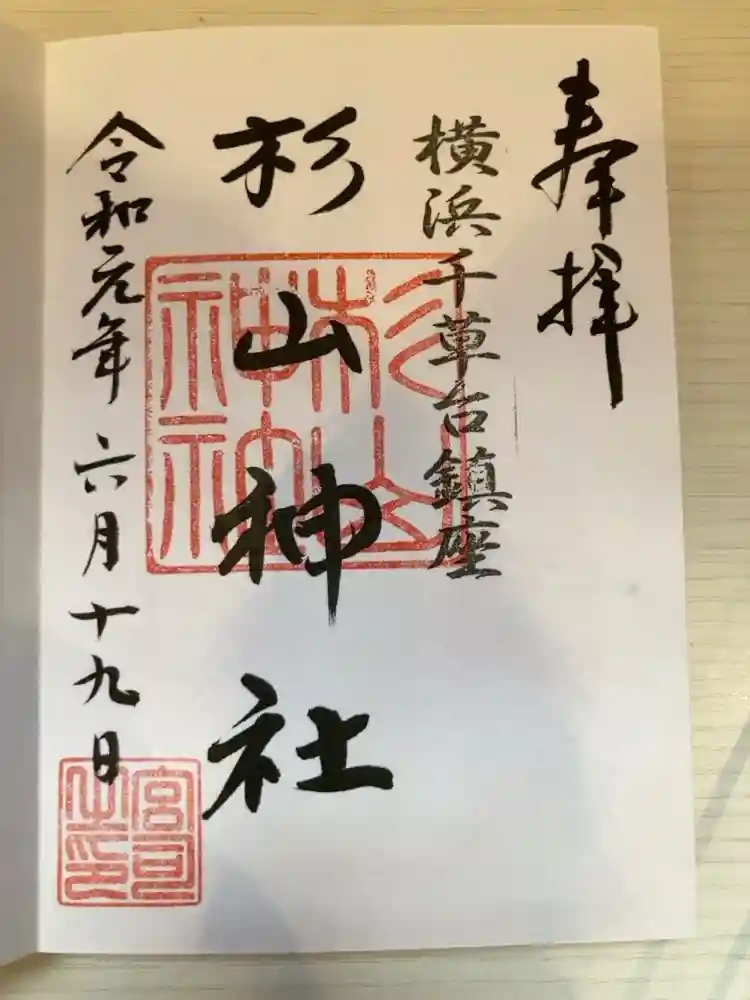 奉拝
横浜千草台鎮座
杉山神社
杉山神社
令和元年六月十九日
宮司之印